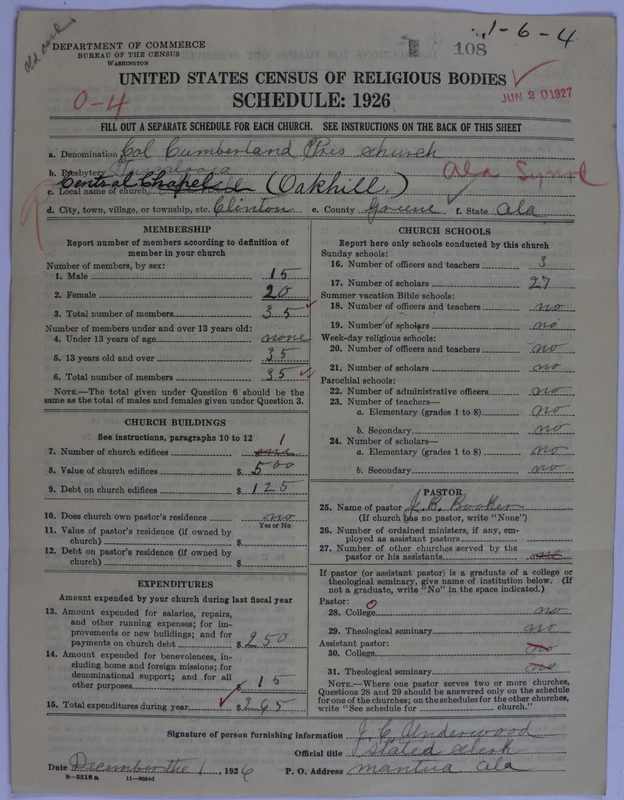 old card
1-6-4
108
DEPARTMENT OF COMMERCE
BUREAU OF THE CENSUS
WASHINGTON
UNITED STATES CENSUS OF RELIGIOUS BODIES
SCHEDULE: 1926
0-4
JUN 20 1927
FILL OUT A SEPARATE SCHEDULE FOR EACH CHURCH. SEE INSTRUCTIONS ON THE BACK OF THIS SHEET
a. Denomination Col Cumberland Pres church
b. Presbytery
Ala Synod
c. Local name of church, Central Chapel (Oakhill.)
d. City, town, village, or township, etc. Clinton e. County Greene f. State Ala
MEMBERSHIP
Report number of members according to definition of
member in your church
Number of members, by sex:
1. Male 15
2. Female 20
3. Total number of members 35
Number of members under and over 13 years old:
4. Under 13 years of age none
5. 13 years old and over 35
6. Total number of members 35
NOTE.—The total given under Question 6 should be
the same as the total of males and females given under Question 3.
CHURCH BUILDINGS
See instructions, paragraphs 10 to 12
7. Number of church edifices one 1
8. Value of church edifices $ 500
9. Debt on church edifices $ 125
10. Does church own pastor's residence no
Yes or No
11. Value of pastor's residence (if owned by
church) $
12. Debt on pastor's residence (if owned by
church) $
EXPENDITURES
Amount expended by your church during last fiscal year
13. Amount expended for salaries, repairs,
and other running expenses; for im-
provements or new buildings; and for
payments on church debt $ 250
14. Amount expended for benevolences, in-
cluding home and foreign missions; for
denominational support; and for all
other purposes $ 15
15. Total expenditures during year $ 265
CHURCH SCHOOLS
Report here only schools conducted by this church
Sunday schools:
16. Number of officers and teachers 3
17. Number of scholars 27
Summer vacation Bible schools:
18. Number of officers and teachers no
19. Number of scholars no
Week-day religious schools:
20. Number of officers and teachers no
21. Number of scholars no
Parochial schools:
22. Number of administrative officers no
23. Number of teachers—
a. Elementary (grades 1 to 8) no
b. Secondary no
24. Number of scholars—
a. Elementary (grades 1 to 8) no
b. Secondary no
PASTOR
25. Name of pastor J. B. Booker
(If church has no pastor, write "None")
26. Number of ordained ministers, if any, em-
ployed as assistant pastors
27. Number of other churches served by the
pastor or his assistants
If pastor (or assistant pastor) is a graduate of a college or
theological seminary, give name of institution below. (If
not a graduate, write "No" in the space indicated.)
Pastor: 0
28. College no
29. Theological seminary no
Assistant pastor:
30. College no
31. Theological seminary no
NOTE.—Where one pastor serves two or more churches,
Questions 28 and 29 should be answered only on the schedule
for one of the churches; on the schedules for the other churches,
write "See schedule for church."
Signature of person furnishing information J. C. Underwood
Official title Stated clerk
Date December the 1, 1926 P. O. Address Mantua Ala
8-5518a